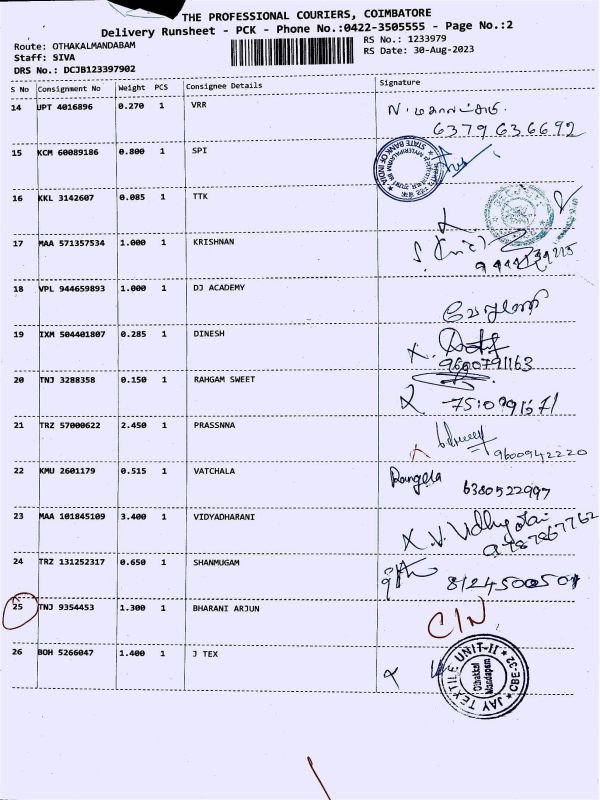 THE PROFESSIONAL COURIERS, COIMBATORE
Delivery Runsheet - PCK - Phone No.:0422-3505555 - Page No.:2
Route: OTHAKALMANDABAM
RS No.: 1233979
Staff: SIVA
RS Date: 30-Aug-2023
DRS No.: DCJB123397902
S No Consignment No Weight PCS Consignee Details Signature
14 UPT 4016896 0.270 1 VRR
6379636692
15 KCM 60089186 0.800 1 SPI
STATE BANK OF INDIA
16 KKL 3142607 0.085 1 TTK
17 MAA 571357534 1.000 1 KRISHNAN
18 VPL 944659893 1.000 1 DJ ACADEMY
19 IXM 504401807 0.285 1 DINESH
9600791163
20 TNJ 3288358 0.150 1 RAHGAM SWEET
21 TRZ 57000622 2.450 1 PRASSNNA
9600942220
22 KMU 2601179 0.515 1 VATCHALA
Rangela
6380522997
23 MAA 101845109 3.400 1 VIDYADHARANI
X. V.
9787867762
24 TRZ 131252317 0.650 1 SHANMUGAM
8124500501
25 TNJ 9354453 1.300 1 BHARANI ARJUN
C/N
26 BOH 5266047 1.400 1 J TEX
JAY TEXTILE UNIT-II
Othakkal
Mandapam
CBE-32